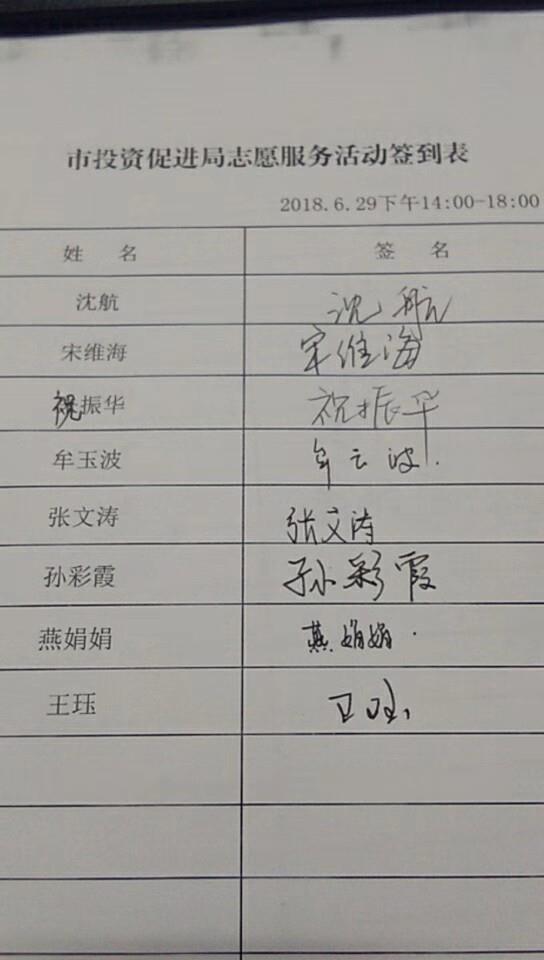 市投资促进局志愿服务活动签到表
2018.6.29下午14:00-18:00
姓 名 签 名
沈航 沈航
宋维海 宋维海
祝振华 祝振华
牟玉波 牟玉波
张文涛 张文涛
孙彩霞 孙彩霞
燕娟娟 燕娟娟
王珏 王珏